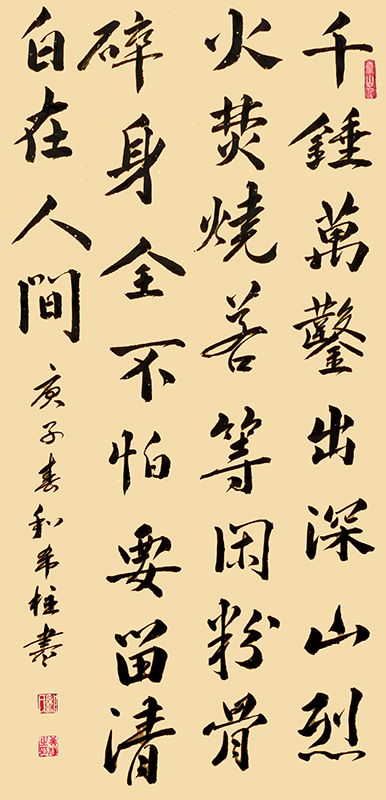 千錘萬鑿出深山烈
火焚燒若等閑粉骨
碎身全不怕要留清
白在人間
庚子春和希柱書